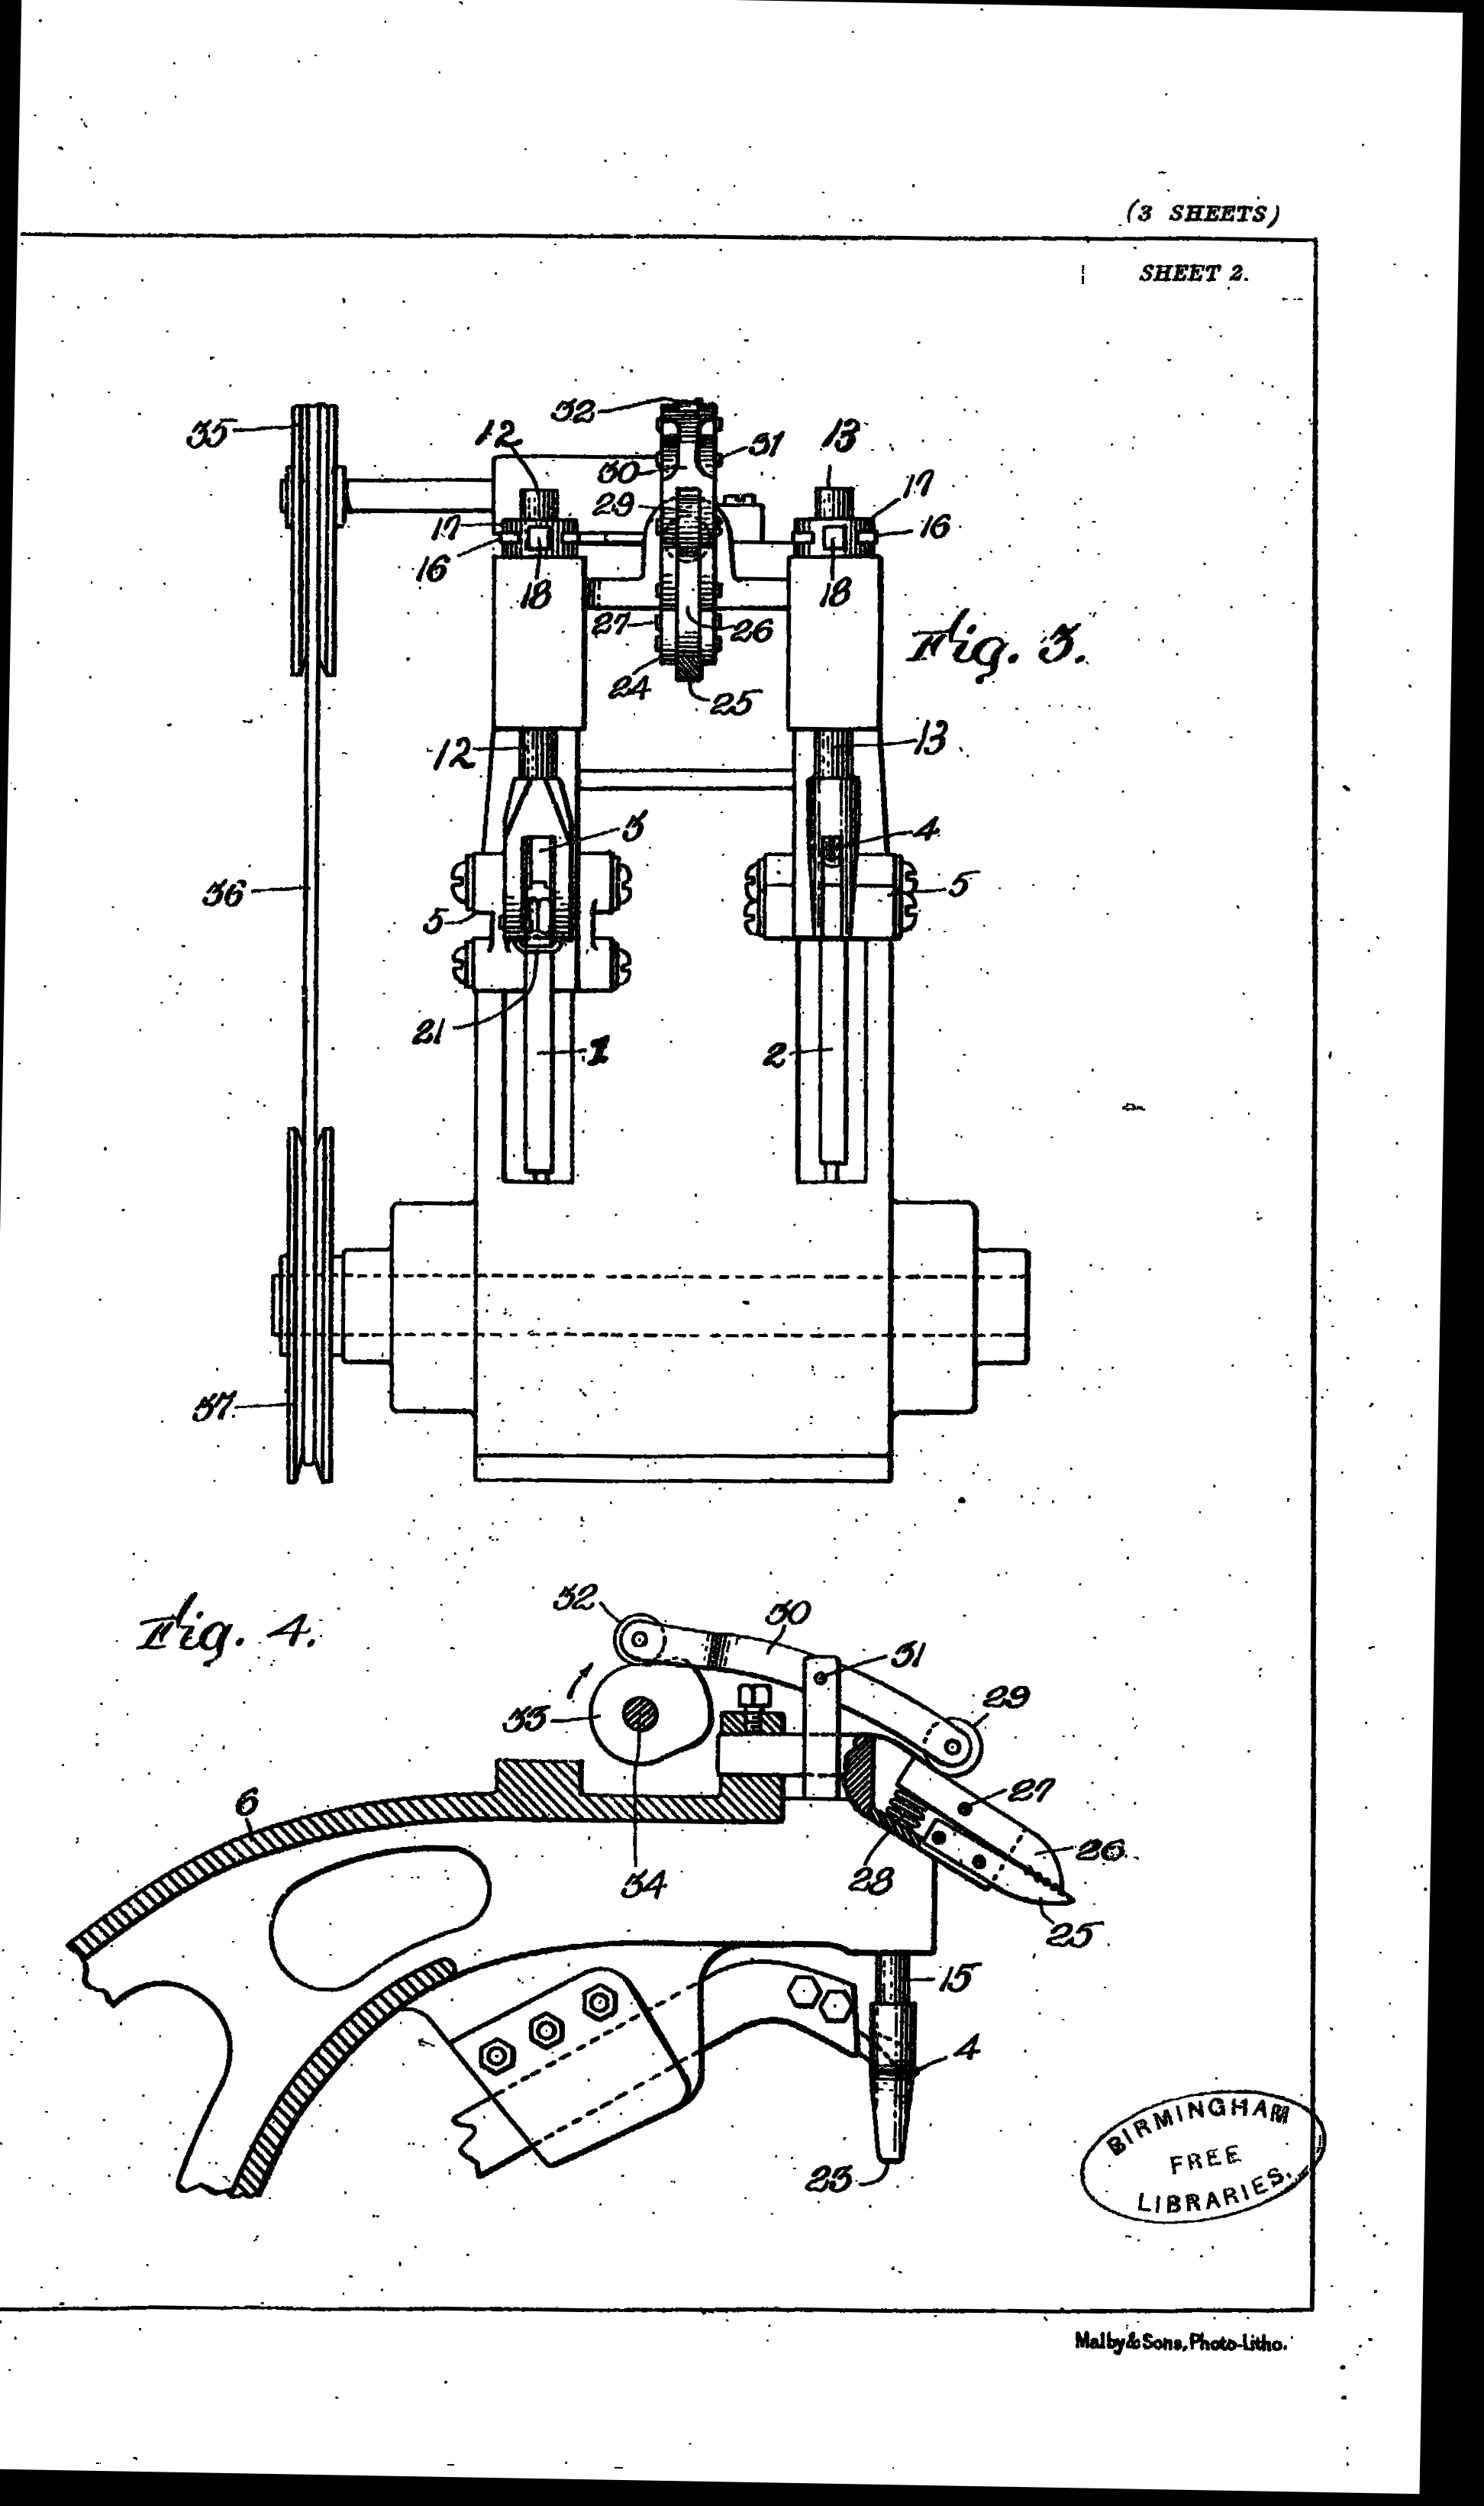 (3 SHEETS)
SHEET 2.
32
35
12
13
31
30
17
29
17
16
16
18
18
27
26
Fig. 3.
24
25
12
13
3
4
36
5
5
21
1
2
37
Fig. 4.
32
30
31
29
33
27
6
26
34
28
25
15
4
23
BIRMINGHAM
FREE
LIBRARIES.
Malby & Sons, Photo-Litho.